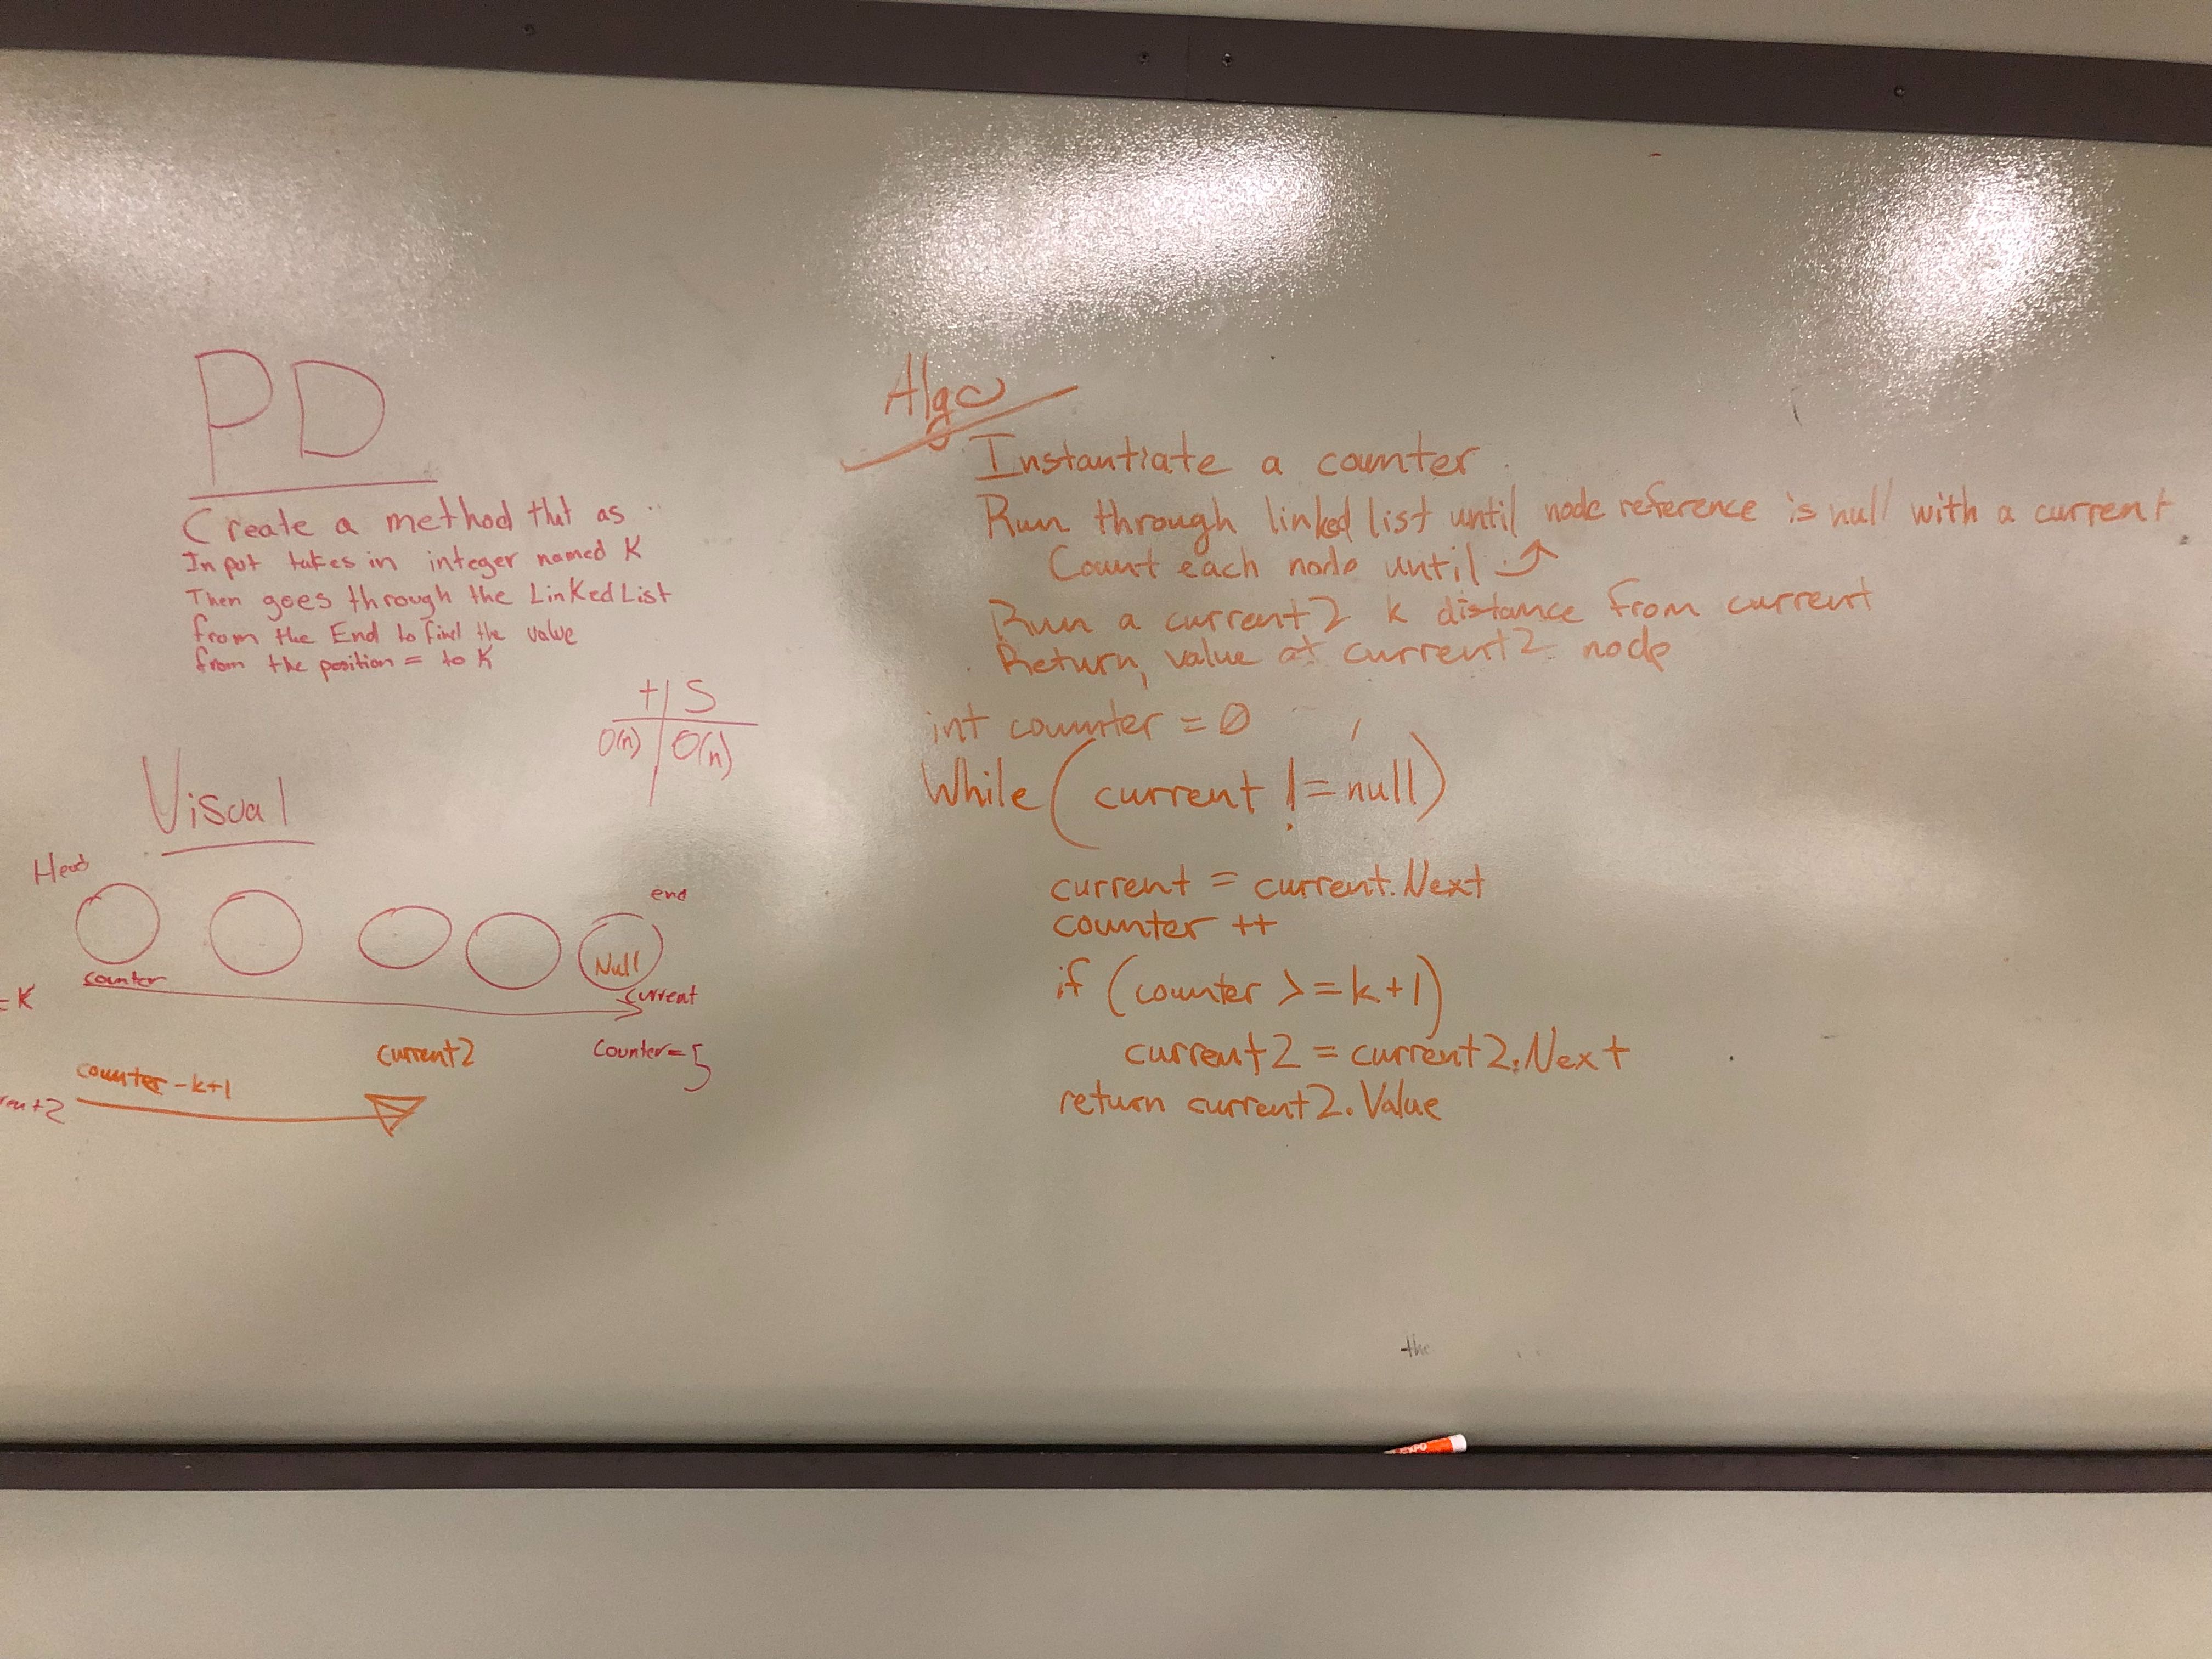 PD
Create a method that as
Input takes in integer named K
Then goes through the LinkedList
from the End to find the value
from the position = to K
t S
O(n) O(n)
Visual
Head
end
Null
counter
current
= K
current2
counter = 5
counter - k+1
Algo
Instantiate a counter
Run through linked list until node reference is null with a current
Count each node until
Run a current2 k distance from current
Return value at current2 node
int counter = 0
While (current != null)
current = current.Next
counter ++
if (counter >= k+1)
current2 = current2.Next
return current2.Value
the
EXPO